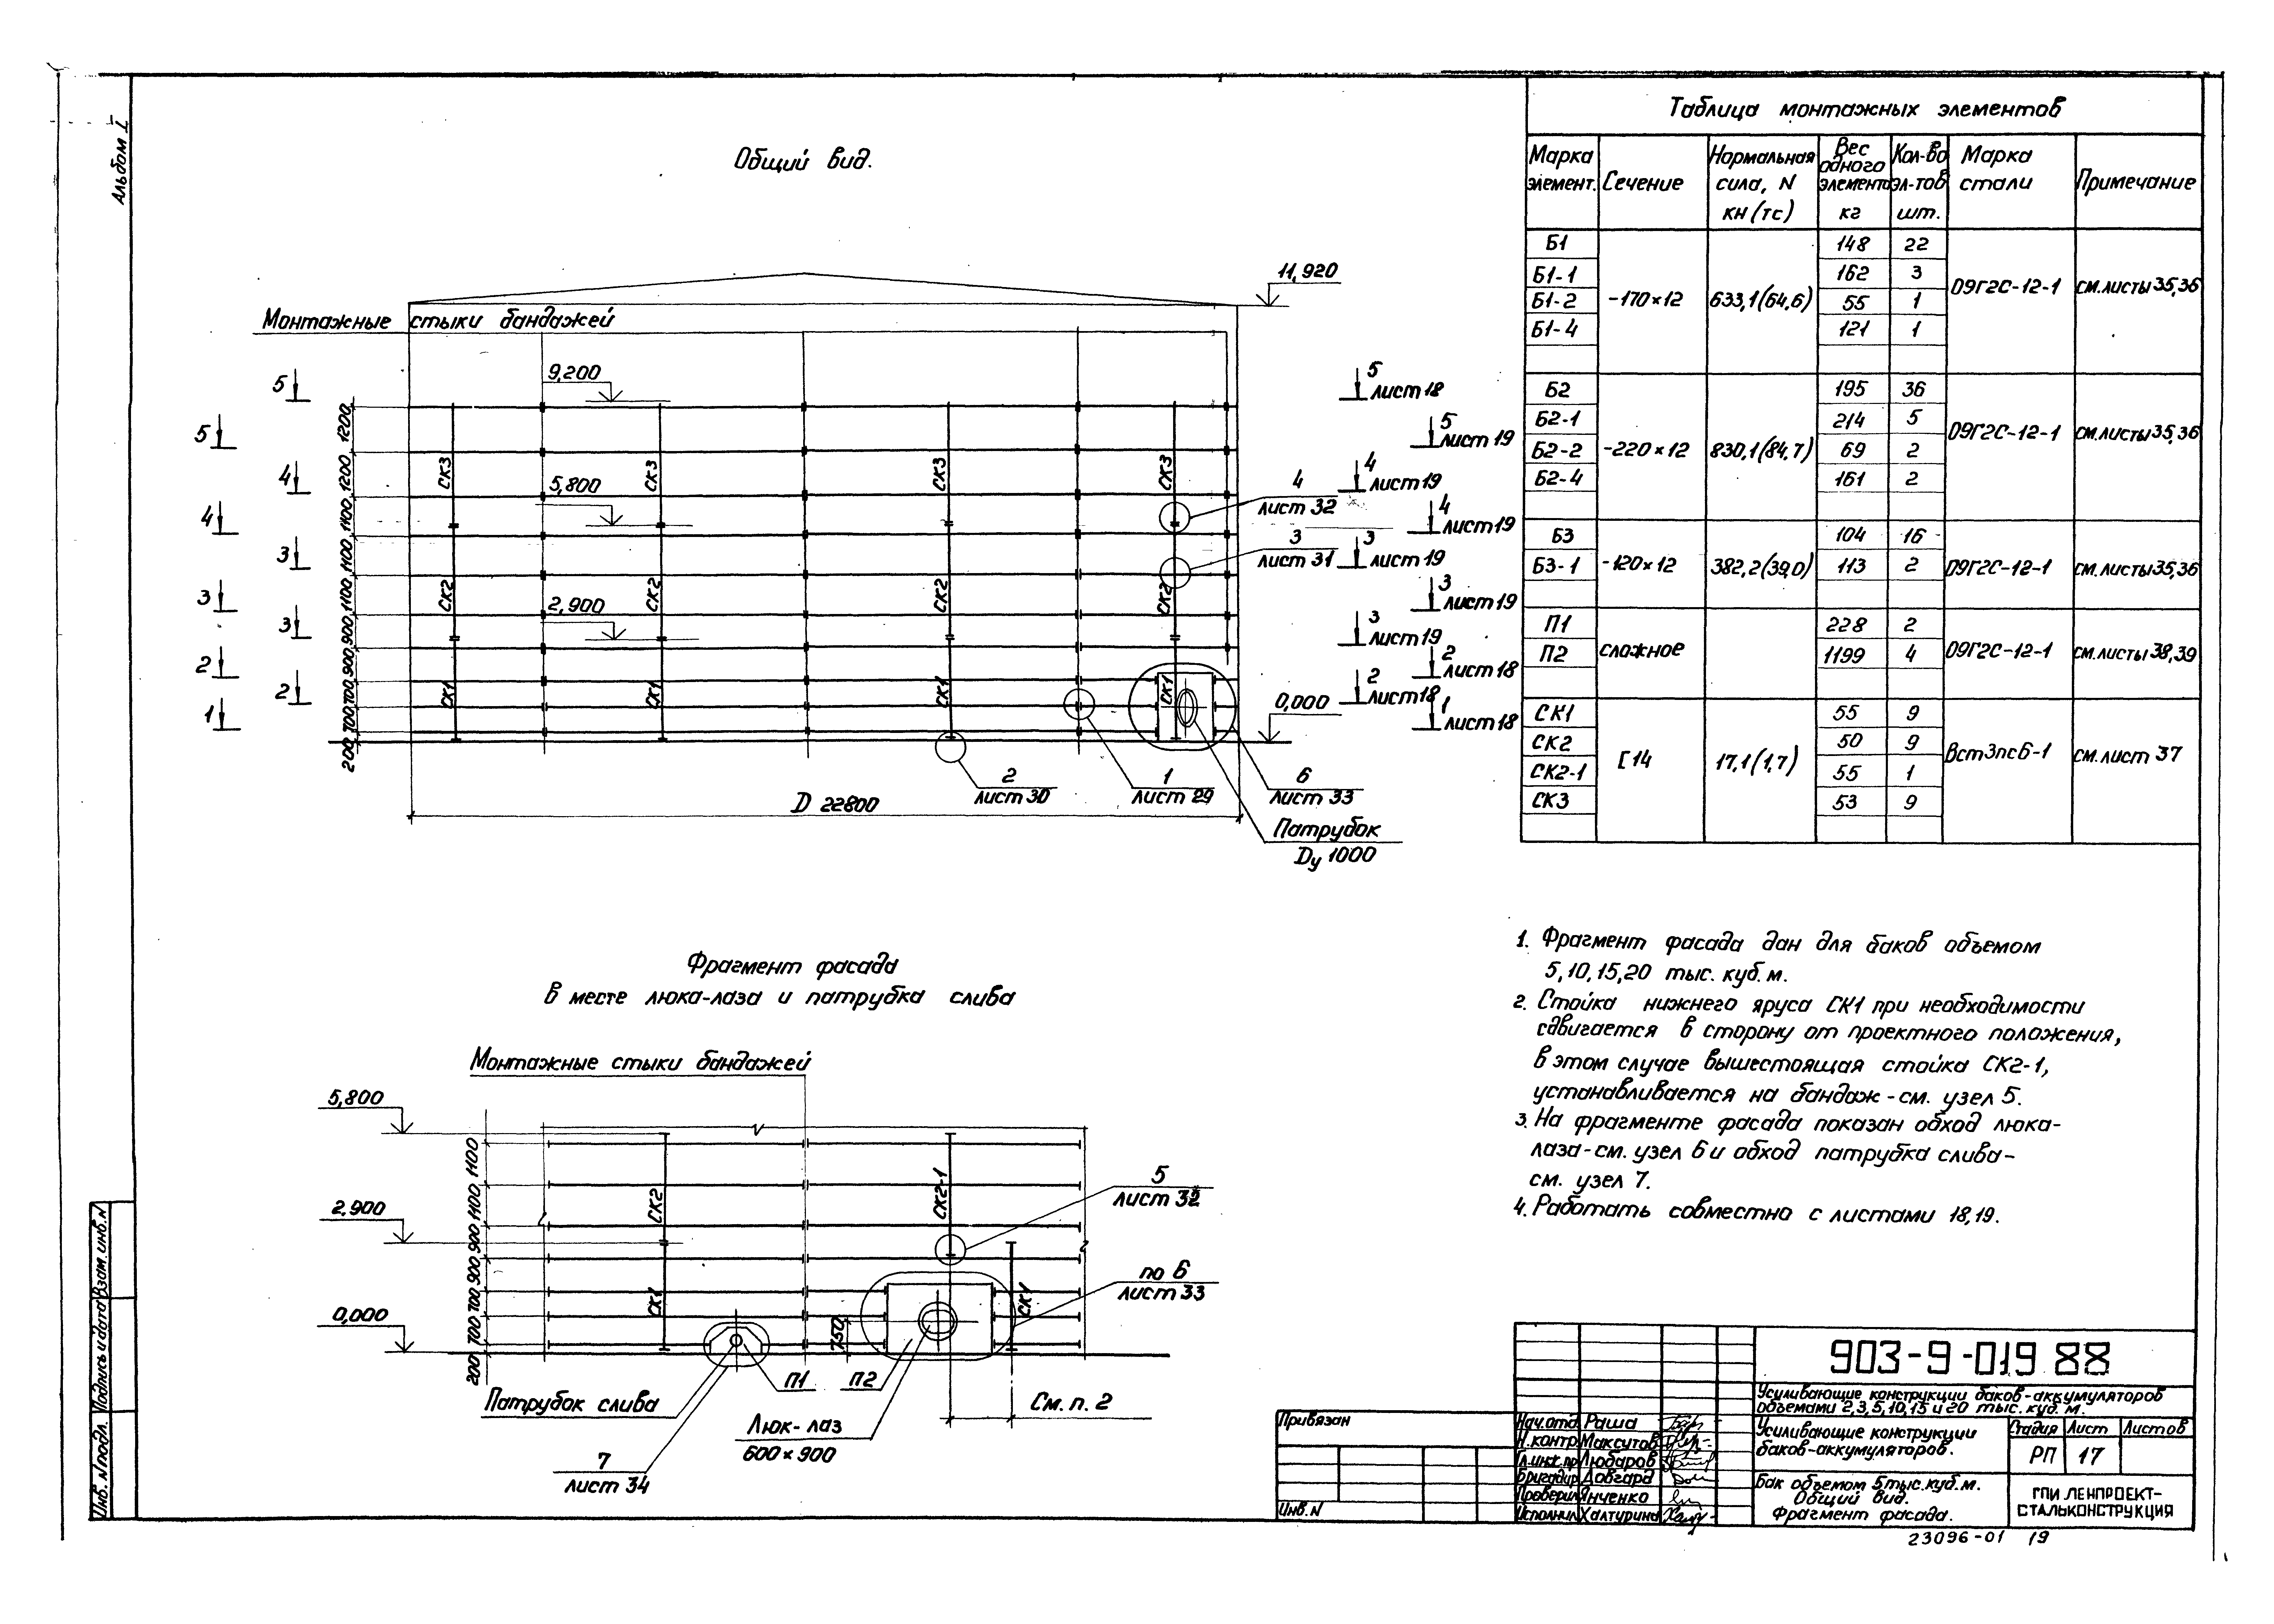 Альбом I
Общий вид.
Монтажные стыки бандажей
11,920
9,200
5,800
2,900
0,000
1200
1200
1100
1100
1100
900
900
700
700
200
5
5
4
4
3
3
3
2
2
1
СК3
СК3
СК3
СК3
СК2
СК2
СК2
СК2
СК1
СК1
СК1
СК1
5
лист 18
5
лист 19
4
лист 19
4
лист 19
3
лист 19
3
лист 19
3
лист 19
2
лист 18
2
лист 18
1
лист 18
4
лист 32
3
лист 31
2
лист 30
1
лист 29
6
лист 33
Патрубок
Dу 1000
D 22800
Таблица монтажных элементов
Марка элемент.
Сечение
Нормальная сила, N кн (тс)
Вес одного элемента кг
Кол-во эл-тов шт.
Марка стали
Примечание
Б1 148 22
Б1-1 162 3
Б1-2 -170×12 633,1(64,6) 55 1 09Г2С-12-1 см.листы 35,36
Б1-4 121 1
Б2 195 36
Б2-1 214 5
Б2-2 -220×12 830,1(84,7) 69 2 09Г2С-12-1 см.листы 35,36
Б2-4 161 2
Б3 104 16
Б3-1 -120×12 382,2(39,0) 113 2 09Г2С-12-1 см.листы 35,36
П1 228 2
П2 сложное 1199 4 09Г2С-12-1 см.листы 38,39
СК1 55 9
СК2 [ 14 17,1(1,7) 50 9 Вст3пс6-1 см.лист 37
СК2-1 55 1
СК3 53 9
Фрагмент фасада
в месте люка-лаза и патрубка слива
Монтажные стыки бандажей
5,800
2,900
0,000
1100
1100
900
900
700
700
200
СК2
СК2-1
СК1
СК1
5
лист 32
по 6
лист 33
750
П1
П2
Патрубок слива
Люк-лаз
600×900
См. п. 2
7
лист 34
1. Фрагмент фасада дан для баков объемом
5,10,15,20 тыс. куб. м.
2. Стойка нижнего яруса СК1 при необходимости
сдвигается в сторону от проектного положения,
в этом случае вышестоящая стойка СК2-1,
устанавливается на бандаж-см. узел 5.
3. На фрагменте фасада показан обход люка-
лаза-см. узел 6 и обход патрубка слива-
см. узел 7.
4. Работать совместно с листами 18,19.
903-9-019 88
Усиливающие конструкции баков-аккумуляторов
объемами 2,3,5,10,15 и 20 тыс. куб. м.
Усиливающие конструкции
баков-аккумуляторов.
Стадия Лист Листов
РП 17
Бак объемом 5тыс.куб.м.
Общий вид.
Фрагмент фасада.
ГПИ ЛЕНПРОЕКТ-
СТАЛЬКОНСТРУКЦИЯ
Нач.отд Раша
Н.контр. Максутов
Гл.инж.пр Людаров
Бригадир Довгард
Проверил Янченко
Исполнил Халтурина
Привязан
Инв. N
Инв. N подл.
Подпись и дата
Взам. инв. N
23096-01 19